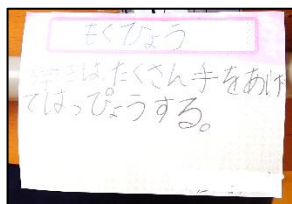 もくひょう
は、たくさん手をあげ
てはっぴょうする。